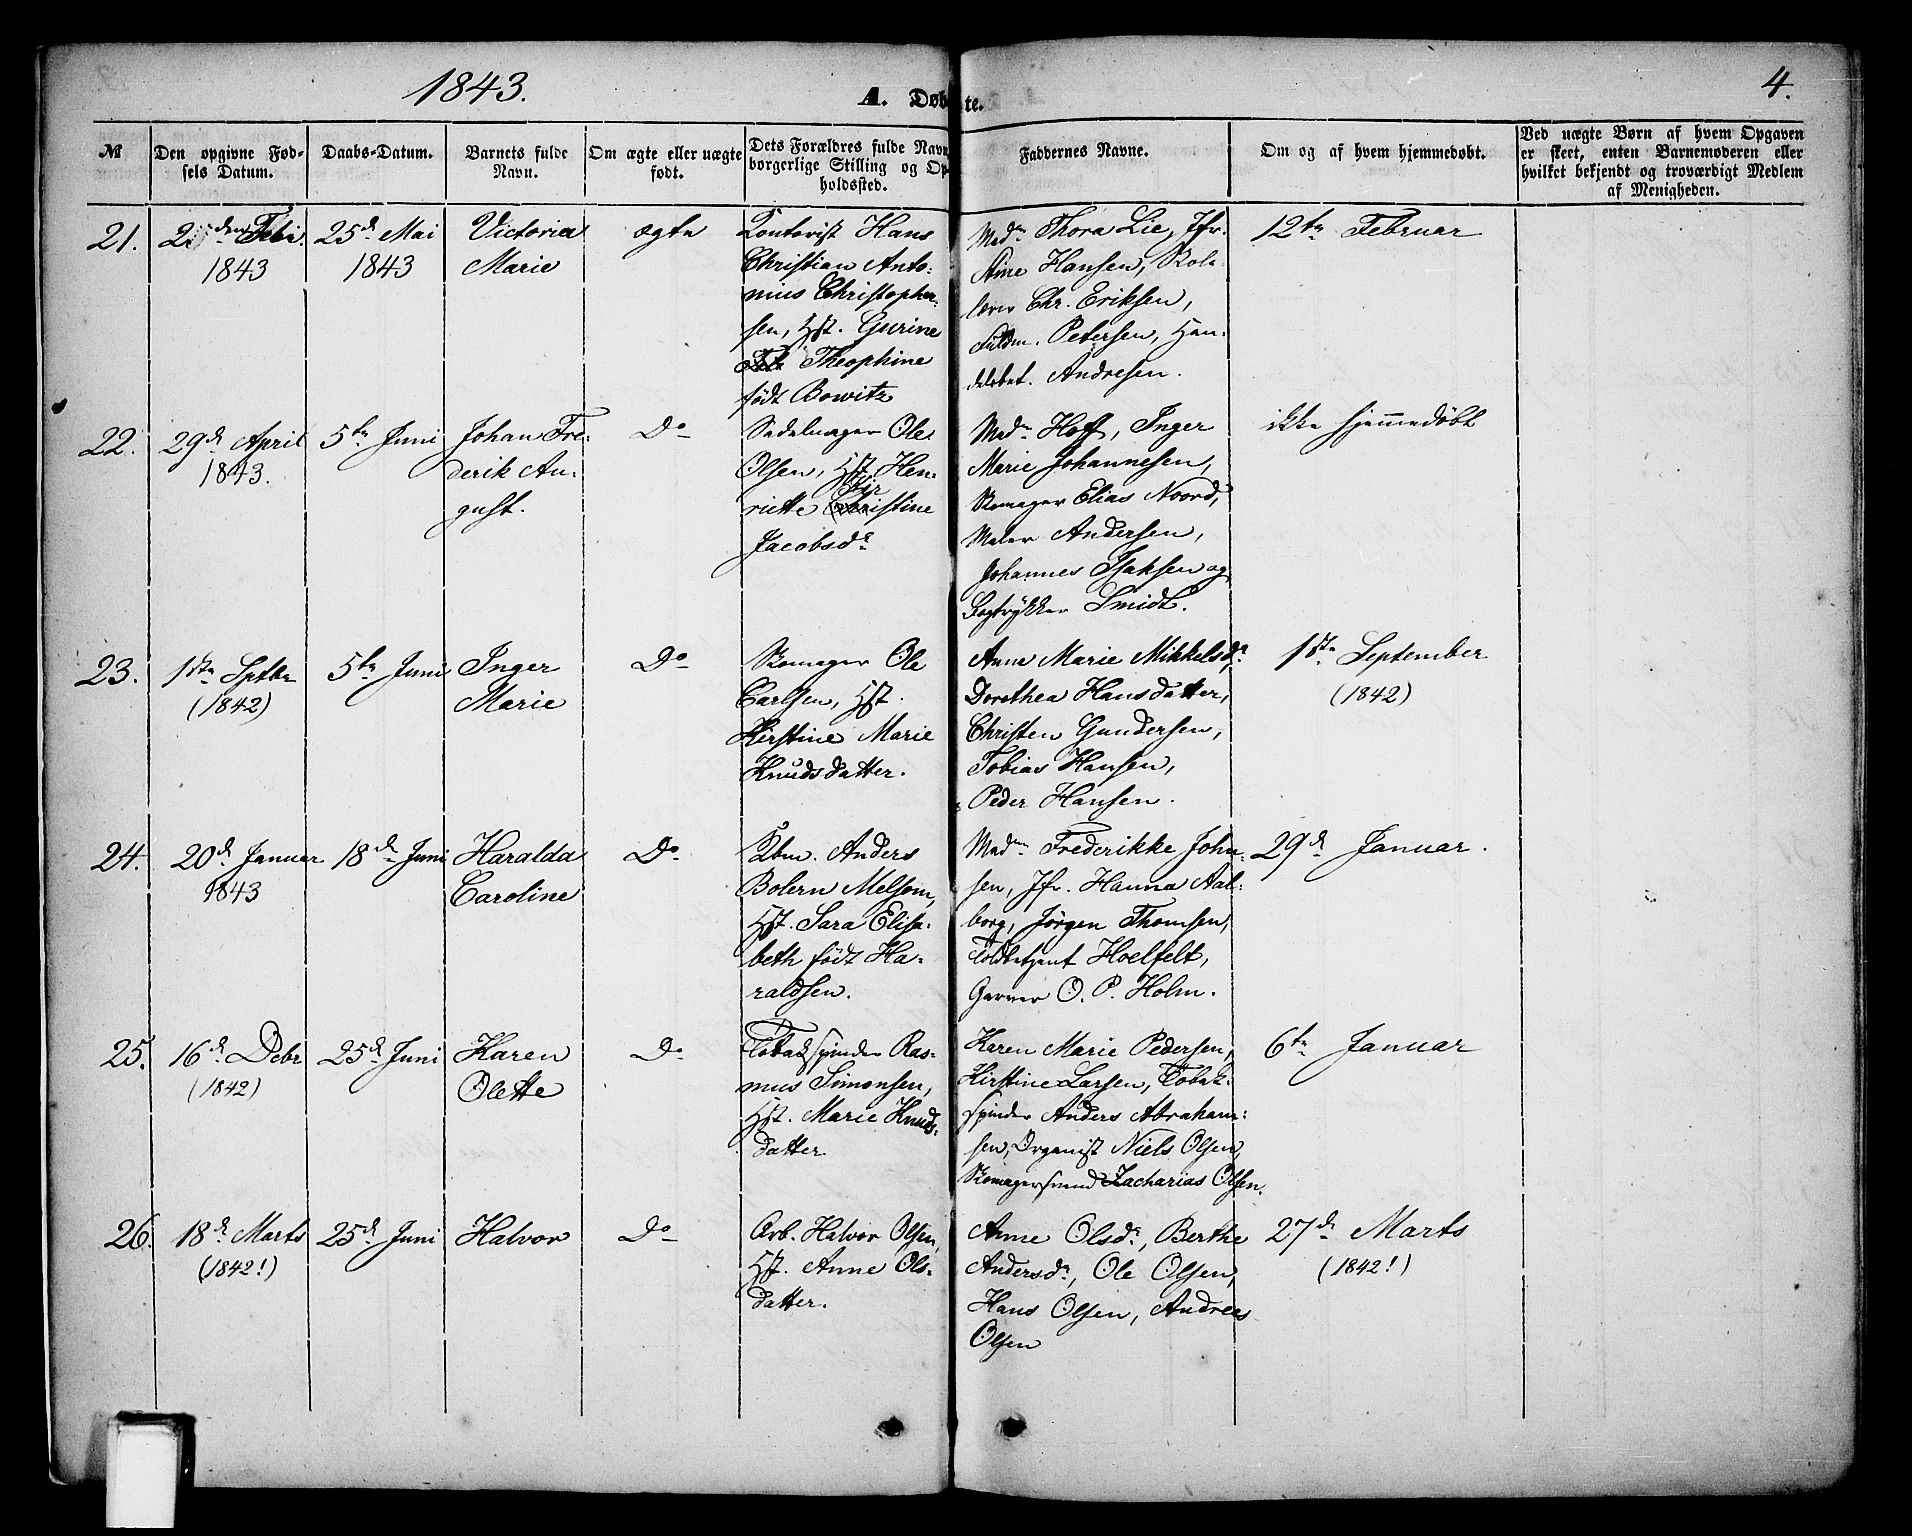 1843.
A. Døbte.
4.
№
Den opgivne Fød-
sels Datum.
Daabs-Datum.
Barnets fulde
Navn.
Om ægte eller uægte
født.
Dets Forældres fulde Navn
borgerlige Stilling og Op-
holdssted.
Faddernes Navne.
Om og af hvem hjemmedøbt.
Ved uægte Børn af hvem Opgaven
er skeet, enten Barnemoderen eller
hvilket bekjendt og troværdigt Medlem
af Menigheden.
21.
Febr
1843
25d. Mai
1843
Victoria
Marie
ægte
Kontorist Hans
Christian Anto-
nius Christopher-
sen, Hst. Gurine
Theophine
født Bowitz
Madm Thora Lie, Jfr.
Stine Hansen, Skole-
lærer Chr. Eriksen,
Fuldm. Petersen, Han-
delsbet. Andresen.
12te Februar
22.
29d. April
1843.
5te Juni
Johan Fre-
derik Au-
gust.
Do
Sadelmager Ole
Olsen, Hst. Hen-
Kir
riette Christine
Jacobsdr
Madm Hoff, Inger
Marie Johannesen,
Skomager Elias Noord,
Maler Andersen,
Johannes Isaksen og
Bogtrykker Smidt.
ikke hjemmedøbt
23.
1ste Sptbr
(1842)
5te Juni
Inger
Marie
Do
Skomager Ole
Carlsen, Hst.
Kirstine Marie
Knudsdatter.
Anne Marie Mikkelsdr.
Dorothea Hansdatter,
Christen Gundersen,
Tobias Hansen,
Peder Hansen.
1ste September
(1842)
24.
20d. Januar
1843
18d. Juni
Haralda
Caroline
Do
Kbm. Anders
Bolern Melsom,
Hst. Sara Elisa-
beth født Ha-
raldsen.
Madm Frederikke John-
sen, Jfr. Hanna Aal-
borg, Jørgen Thomsen,
Toldbetjent Hoelfelt,
Garver O. P. Holm.
29d. Januar.
25.
16d. Debr
(1842)
25d. Juni
Karen
Olette
Do
Tobakspinder Ras-
mus Simonsen,
Hst. Marie Knuds-
datter
Karen Marie Pedersen,
Kirstine Larsen, Tobak-
spinder Anders Abraham-
sen, Organist Niels Olsen,
Skomagersvend Zacharias Olsen.
6te Januar
26.
18d. Marts
(1842!)
25d. Juni
Halvor
Do
Arb. Halvor Olsen,
Hst. Anne Ols-
datter.
Anne Olsdr, Berthe
Andersdr, Ole Olsen,
Hans Olsen, Andreas
Olsen
27d. Marts
(1842!)